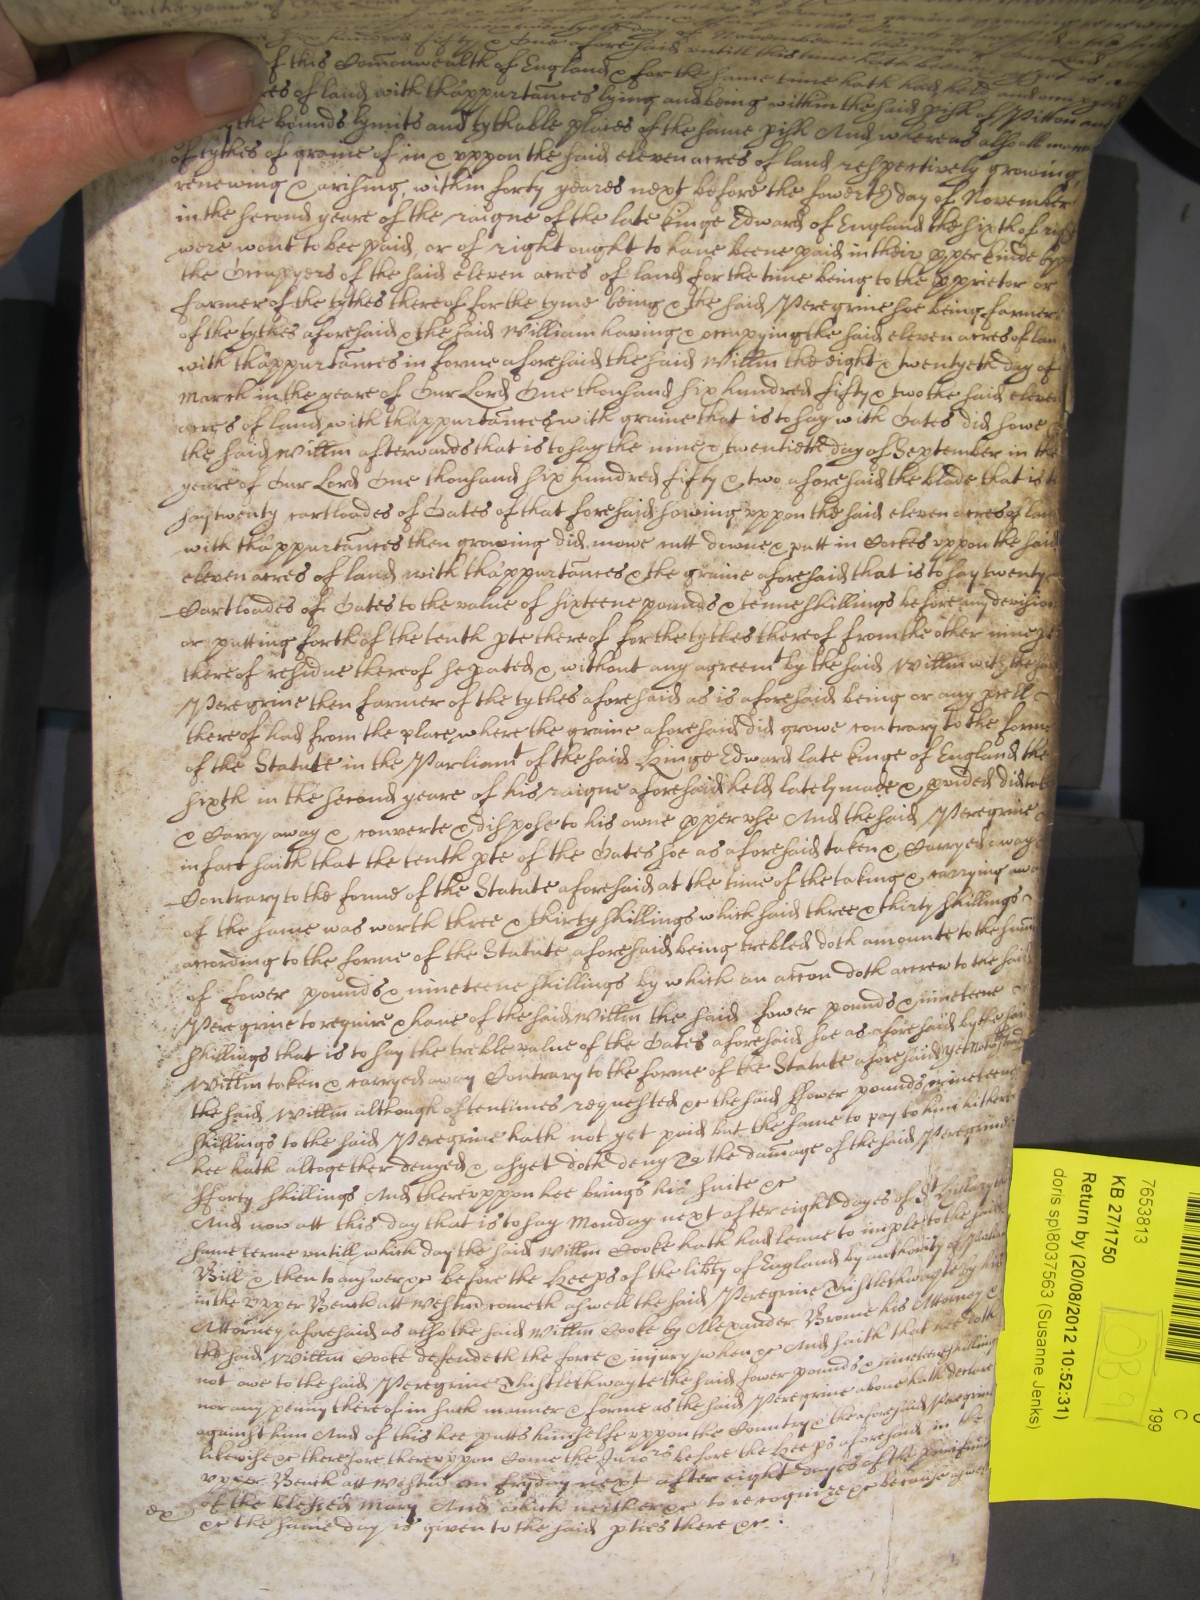 of this Comonwealth of England & for the same time hath had held and occupied
acres of land with thappurtances lying and being within the said pish of Pitton and
the bounds lymits and tythable places of the same pish And whereas alsoe all manner
of tythes of graine of in & uppon the said eleven acres of land respectively growing
renewing & arising within forty yeares next before the fowerth day of November
in the second yeare of the raigne of the late kinge Edward of England the sixth of right
were wont to bee paid or of right ought to have beene paid in their pper kinde by
the Occupyers of the said eleven acres of land for the time being to the pprietor or
farmer of the tythes thereof for the tyme being & the said Peregrine soe being farmer
of the tythes aforesaid & the said William having & occupying the said eleven acres of land
with thappurtances in forme aforesaid the said Willm the eight & twentyeth day of
March in the yeare of Our Lord One thousand six hundred fifty & two the said eleven
acres of land with thappurtances with graine that is to say with Oates did sowe &
the said Willm afterwards that is to say the nine & twentieth day of September in the
yeare of Our Lord One thousand six hundred fifty & two aforesaid the blade that is to
say twenty cartloades of Oates of that foresaid sowing uppon the said eleven acres of land
with thappurtances then growing did mowe cutt downe & putt in Cockes uppon the said
eleven acres of land with thappurtances & the graine aforesaid that is to say twenty
Cartloades of Oates to the value of sixteene pounds & tenne shillings before any devision
or putting forth of the tenth pte thereof for the tythes thereof from the other nine pts
thereof residue thereof sepated & without any agreemt by the said Willm with the said
Peregrine then farmer of the tythes aforesaid as is aforesaid being or any
thereof had from the place where the graine aforesaid did growe contrary to the forme
of the Statute in the Parliamt of the said Kinge Edward late kinge of England the
sixth in the second yeare of his raigne aforesaid held lately made & pvided did take
& Carry away & converte & dispose to his owne pper use And the said Peregrine
in fact saith that the tenth pte of the Oates soe as aforesaid taken & Carryed away
Contrary to the forme of the Statute aforesaid at the time of the taking & carrying away
of the same was worth three & thirty shillings which said three & thirty shillings
according to the forme of the Statute aforesaid being trebled doth amounte to the summe
of fower pounds & nineteene shillings by which an accon doth accrew to the said
Peregrine to require & have of the said Willm the said fower pounds & nineteene
shillings that is to say the treble value of the Oates aforesaid soe as aforesaid by the said
Willm taken & carryed away Contrary to the forme of the Statute aforesaid yet
the said Willm although oftentimes requested &c the said ffower pounds & nineteene
shillings to the said Peregrine hath not yet paid but the same to pay to him hitherto
hee hath altogether denyed & as yet doth deny To the damage of the said Peregrine
fforty shillings And thereuppon hee brings his suite &c
And now att this day that is to say Monday next after eight dayes of St Hillary the
same terme untill which day the said Willm Cooke hath had leave to imple to the said
Bill & then to answer &c before the Keeps of the libty of England by authority of
in the Upper Bench att Westm cometh aswell the said Peregrine Thistlethwayte by his
Attorney aforesaid as also the said Willm Cooke by Alexander Brome his Attorney &
the said Willm Cooke defendeth the force & injury when &c And saith that hee doth
not owe to the said Peregrine Thistlethwayte the said fower pounds & nineteene shillings
nor any penny thereof in such manner & forme as the said Peregrine above hath declared
against him And of this hee putts himselfe uppon the Country & the aforesaid Peregrine
likewise &c therefore thereuppon Come the Jurors before the Keeps aforesaid in the
upper Bench att Westm on fryday next after eight dayes of the purificacon
of the blessed Mary And which neither &c to recognize &c because aswell
&c the same day is given to the said pties there &c
7653813
KB 27/1750
Return by (20/08/2012 10:52:31)
doris spl8037563 (Susanne Jenks)
199
C